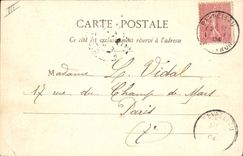 III
CARTE POSTALE
Ce côté est exclusivement réservé à l'adresse
Madame L. Vidal
17 rue du Champ de Mars
Paris
7e